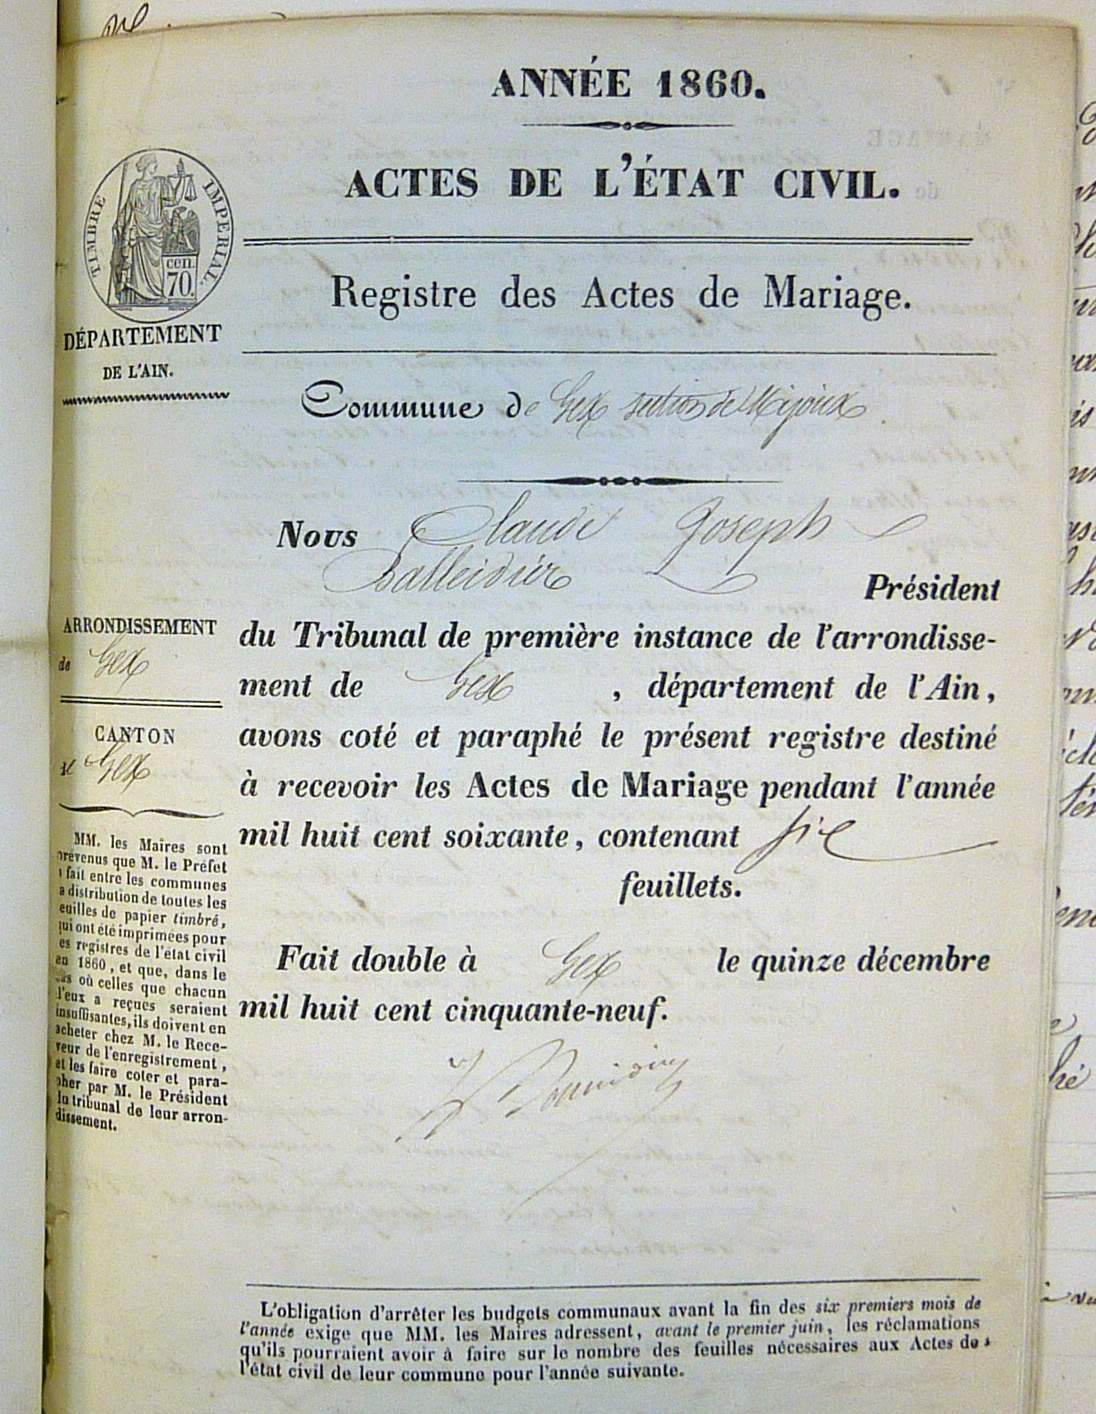 ANNÉE 1860.
ACTES DE L'ÉTAT CIVIL.
TIMBRE IMPERIAL.
cen.
70.
DÉPARTEMENT
DE L'AIN.
Registre des Actes de Mariage.
Commune de Gex section de Mijoux
Nous Claude Joseph
Balleidier Président
du Tribunal de première instance de l'arrondisse-
ment de Gex, département de l'Ain,
avons coté et paraphé le présent registre destiné
à recevoir les Actes de Mariage pendant l'année
mil huit cent soixante, contenant six
feuillets.
Fait double à Gex le quinze décembre
mil huit cent cinquante-neuf.
ARRONDISSEMENT
de Gex
CANTON
de Gex
MM. les Maires sont
prévenus que M. le Préfet
a fait entre les communes
la distribution de toutes les
feuilles de papier timbré,
qui ont été imprimées pour
les registres de l'état civil
en 1860, et que, dans le
cas où celles que chacun
d'eux a reçues seraient
insuffisantes, ils doivent en
acheter chez M. le Rece-
veur de l'enregistrement,
et les faire coter et para-
pher par M. le Président
du tribunal de leur arron-
dissement.
L'obligation d'arrêter les budgets communaux avant la fin des six premiers mois de
l'année exige que MM. les Maires adressent, avant le premier juin, les réclamations
qu'ils pourraient avoir à faire sur le nombre des feuilles nécessaires aux Actes de
l'état civil de leur commune pour l'année suivante.